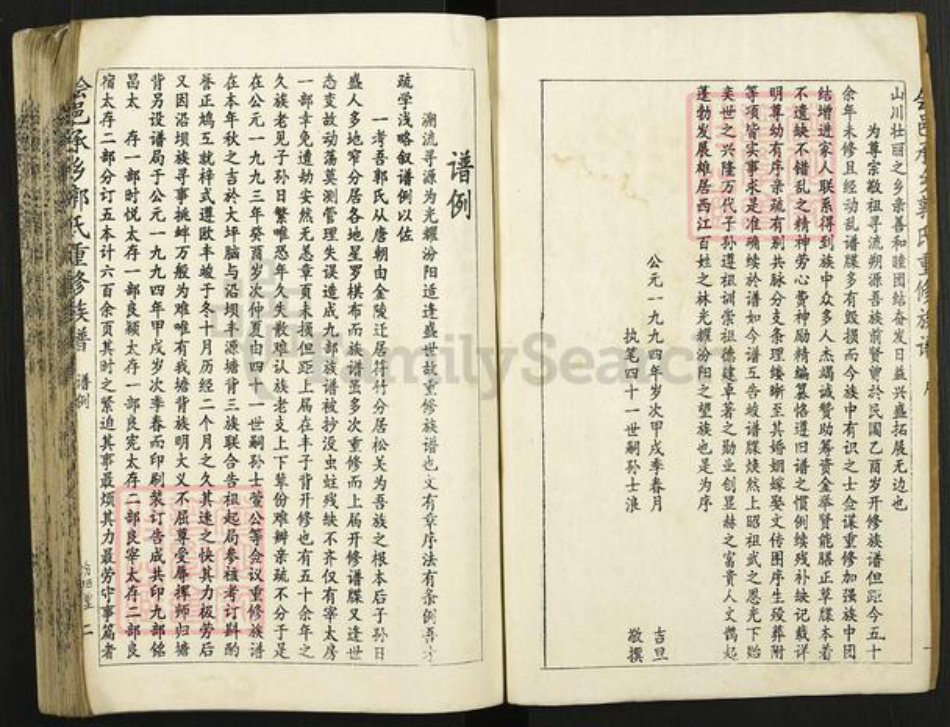 山川壮丽之乡亲善和睦团结奋发日益兴盛拓展无边也
为尊宗敬祖寻流朔源吾族前贤曾於民国乙酉岁开修族谱但距今五十
余年未修且经动乱谱牒多有毁损而今族中有识之士佥谋重修加强族中团
结增进家人联系得到族中众多人杰竭诚赞助筹资金举贤能膳正草牒本着
不遗缺不错乱之精神劳心费神励精编纂恪遵旧谱之惯例续残补缺记载详
明尊幼有序亲疏有别共脉分支条理缕晰至其婚姻嫁娶文传图序生殁葬附
等项皆实事求是准确续於谱如今谱互告竣谱牒焕然上昭祖武之恩光下贻
奕世之兴隆万代子孙遵祖训崇祖德建卓著之勋业创显赫之富贵人文鹊起
蓬勃发展雄居西江百姓之林光耀汾阳之望族也是为序
公元一九九四年岁次甲戌季春月 吉旦
执笔四十一世嗣孙士浪 敬撰
谱例
溯流寻源为光耀汾阳适逢盛世故重修族谱也文有章序法有条例吾才
疏学浅略叙谱例以佐
一考吾郭氏从唐朝由金陵迁居符竹分居松关为吾族之根本后子孙日
盛人多地窄分居各地星罗棋布而族谱虽多次重修而上届开修谱牒又逢世
态变故动荡莫测管理失误造成九部族谱被抄没虫蛀残缺不齐仅有宰太房
一部幸免遭劫安然无恙章页未损但距上届在丰子背开修也有五十余年之
久族老见子孙日繁唯恐年久失散难认族老支上下辈份难辨亲疏不分于是
在公元一九九三年癸酉岁次仲夏由四十一世嗣孙士萱公等会议重修族谱
在本年秋之吉於大坪脑与沿坝丰源塘背三族联合告祖起局参核考订斟酌
誉正鸠互就梓式遵欧丰竣于冬十月历经二个月之久其速之快其力极劳后
又因沿坝族寻事挑衅万般为难唯有我塘背族明大义不屈尊受辱挥师归塘
背另设谱局于公元一九九四年甲戌岁次季春而印刷装订告成共印九部铭
昌太 存一部时悦太存一部良颖太存一部良宪太存二部良宰太存二部良
宿太存二部分订五本计六百余页其时之紧迫其事最烦其力最劳守事篇者
会邑承乡郭氏重修族谱 谱例
二